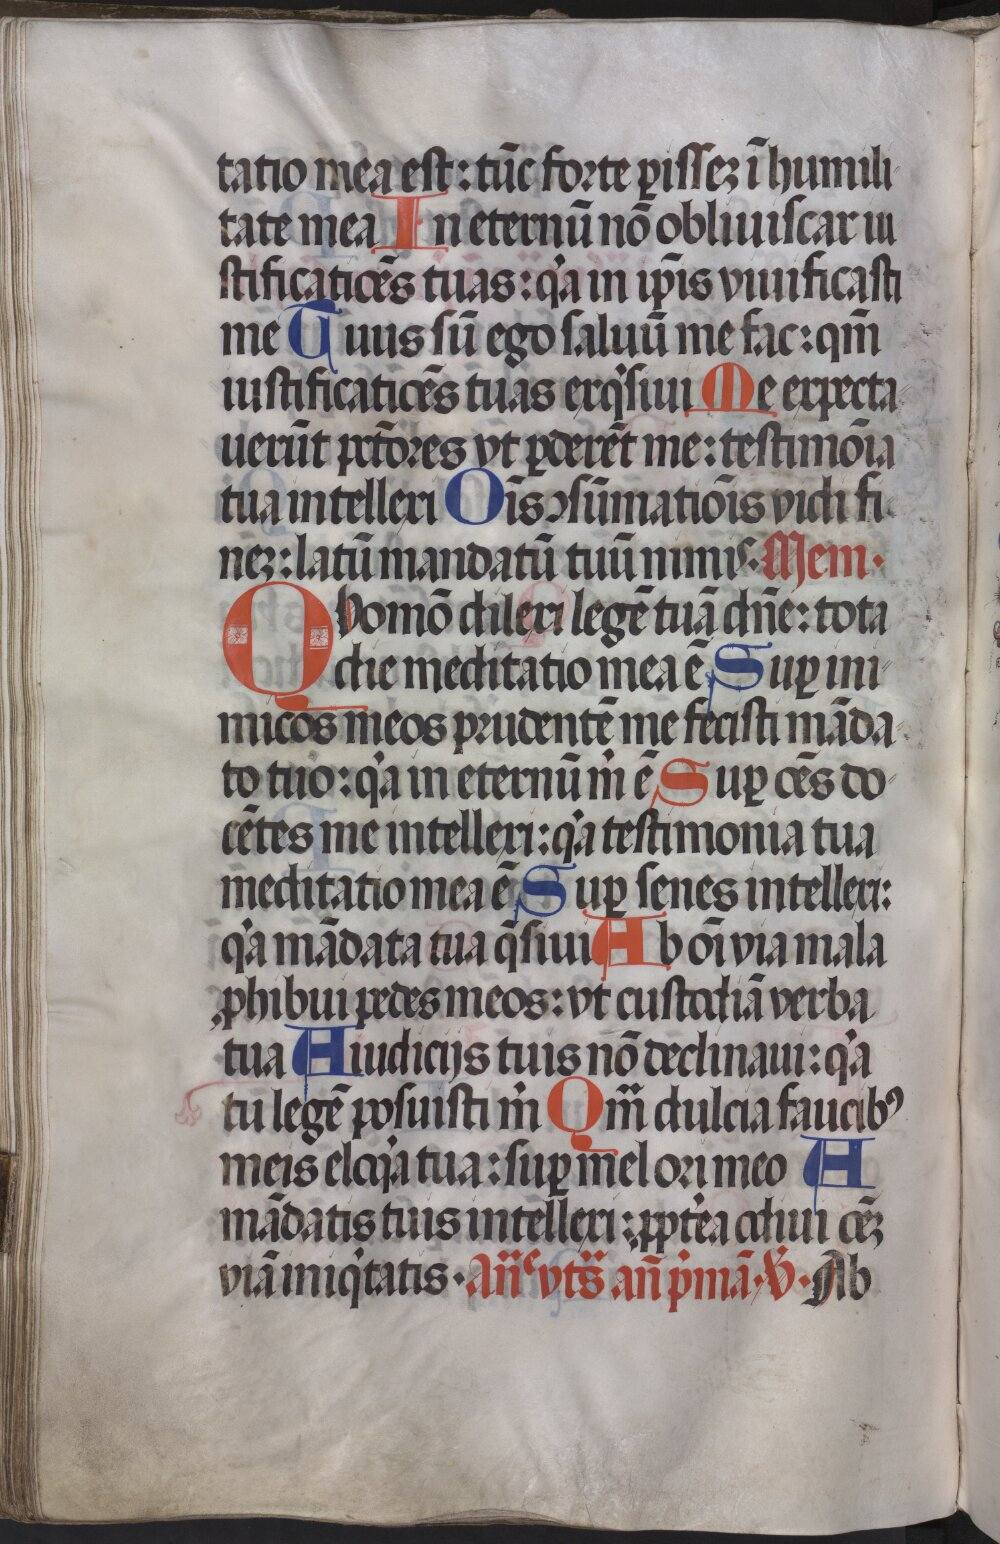 tatio mea est: tūc forte ꝑissez ī humili
tate mea In eternū nō obliuiscar iu
stificatiōēs tuas: qͥa in ip̄is viuificasti
me Tuus sū ego saluū me fac: qm̄
iustificatiōēs tuas exqͥsiui Me expecta
uerūt pctōres vt ꝑderēt me: testimōia
tua intellexi Oīs ꝯsūmatiōis vidi fi
nez: latū mandatū tuū nimis. Mem.
Quomō dilexi legē tuā dn̄e: tota
die meditatio mea ē Suꝑ ini
micos meos prudentē me fecisti māda
to tuo: qͥa in eternū m̄ ē Suꝑ oēs do
cētes me intellexi: qͥa testimonia tua
meditatio mea ē Suꝑ senes intellexi:
qͥa mādata tua q̄siui Ab oī via mala
ꝓhibui pedes meos: vt custodiā verba
tua A iudicijs tuis nō declinaui: qͥa
tu legē posuisti m̄ Qm̄ dulcia faucibꝰ
meis eloqͥa tua: suꝑ mel ori meo A
mādatis tuis intellexi: ꝓpt̄ea odiui oēz
viā iniqͥtatis. an̄ vts an̄ pͥmā. V̄. Ab